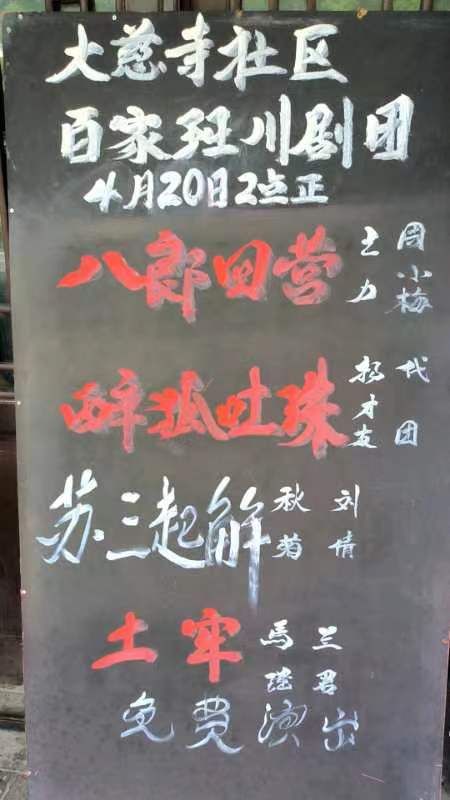 大慈寺社区
百家班川剧团
4月20日2点正
八郎回营 土力 周小梅
醉狐吐珠 杨才友 代团
苏三起解 秋菊 刘倩
土牢 馬 兰君
免费演出